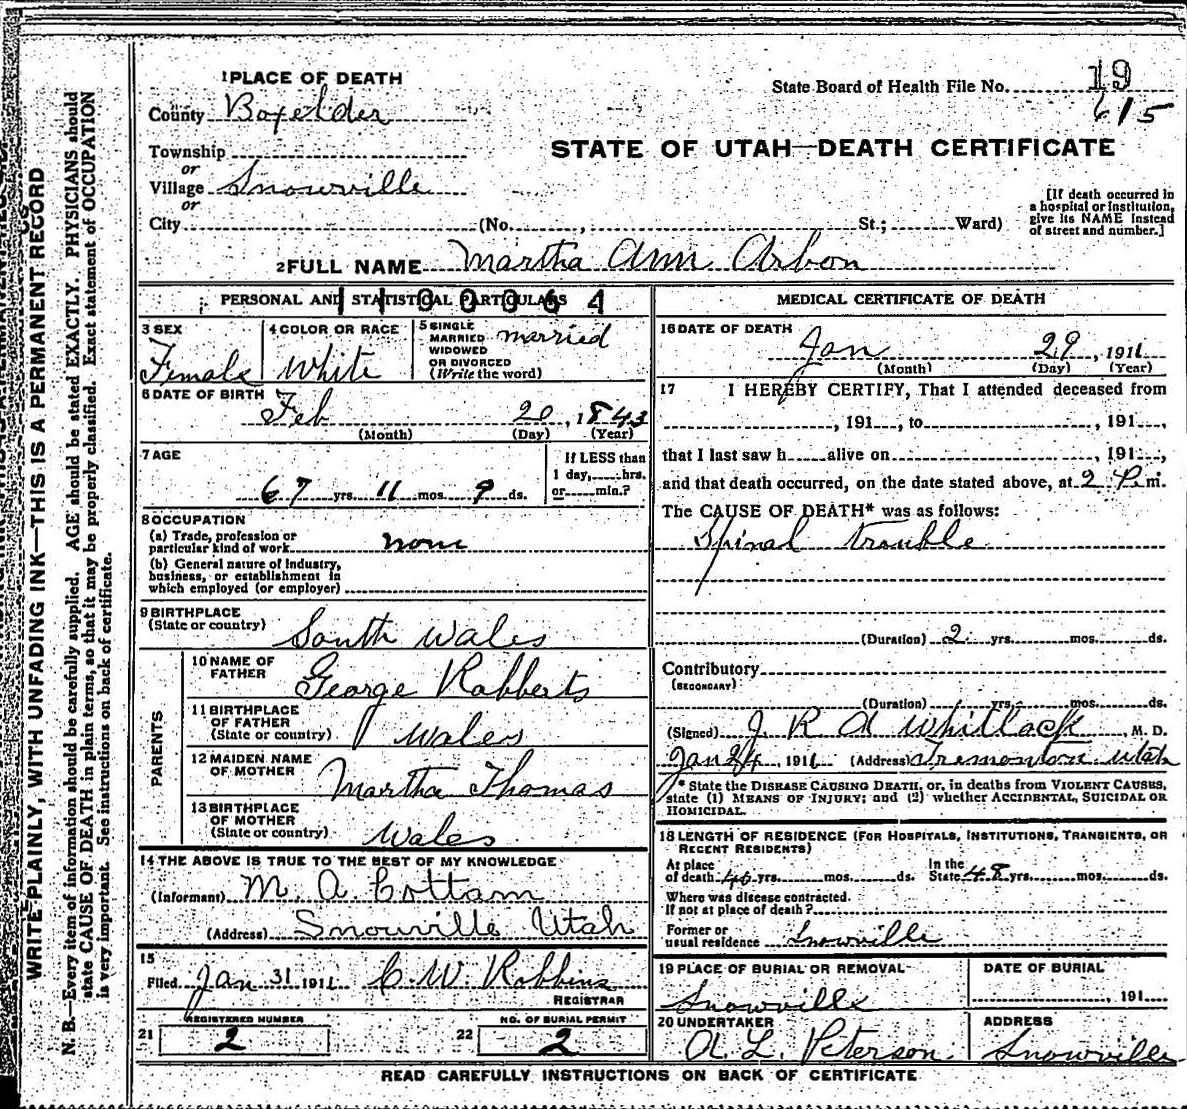 1 PLACE OF DEATH
County Boxelder
Township
or
Village Snowville
or
City (No. , St.; Ward)
State Board of Health File No. 19
615
STATE OF UTAH—DEATH CERTIFICATE
[If death occurred in
a hospital or institution,
give its NAME instead
of street and number.]
2 FULL NAME Martha Ann Arbon
PERSONAL AND STATISTICAL PARTICULARS
1100064
3 SEX
Female
4 COLOR OR RACE
White
5 SINGLE
MARRIED
WIDOWED
OR DIVORCED
(Write the word)
married
6 DATE OF BIRTH
Feb 20, 1843
(Month) (Day) (Year)
7 AGE
67 yrs. 11 mos. 9 ds.
If LESS than
1 day, hrs.
or min.?
8 OCCUPATION
(a) Trade, profession or
particular kind of work none
(b) General nature of Industry,
business, or establishment in
which employed (or employer)
9 BIRTHPLACE
(State or country) South Wales
PARENTS
10 NAME OF
FATHER George Robberts
11 BIRTHPLACE
OF FATHER
(State or country) Wales
12 MAIDEN NAME
OF MOTHER Martha Thomas
13 BIRTHPLACE
OF MOTHER
(State or country) Wales
14 THE ABOVE IS TRUE TO THE BEST OF MY KNOWLEDGE
(Informant) M. A. Cottam
(Address) Snowville Utah
15
Filed Jan 31 1911 C. W. Robbins
REGISTRAR
REGISTERED NUMBER
21 2
NO. OF BURIAL PERMIT
22 2
MEDICAL CERTIFICATE OF DEATH
16 DATE OF DEATH
Jan 29, 1911
(Month) (Day) (Year)
17 I HEREBY CERTIFY, That I attended deceased from
, 191 , to , 191 ,
that I last saw h alive on , 191 ,
and that death occurred, on the date stated above, at 2 P. m.
The CAUSE OF DEATH* was as follows:
Spinal trouble
(Duration) 2 yrs. mos. ds.
Contributory
(SECONDARY)
(Duration) yrs. mos. ds.
(Signed) J. R. A Whitlock M. D.
Jan , 1911 (Address) Tremonton Utah
* State the DISEASE CAUSING DEATH, or, in deaths from VIOLENT CAUSES,
state (1) MEANS OF INJURY; and (2) whether ACCIDENTAL, SUICIDAL OR
HOMICIDAL.
18 LENGTH OF RESIDENCE (FOR HOSPITALS, INSTITUTIONS, TRANSIENTS, OR
RECENT RESIDENTS)
At place
of death 40 yrs. mos. ds.
In the
State 48 yrs. mos. ds.
Where was disease contracted.
If not at place of death?
Former or
usual residence Snowville
19 PLACE OF BURIAL OR REMOVAL
Snowville
DATE OF BURIAL
, 191
20 UNDERTAKER
A. L. Peterson
ADDRESS
Snowville
READ CAREFULLY INSTRUCTIONS ON BACK OF CERTIFICATE
WRITE PLAINLY, WITH UNFADING INK—THIS IS A PERMANENT RECORD
N. B.—Every item of information should be carefully supplied. AGE should be stated EXACTLY. PHYSICIANS should
state CAUSE OF DEATH in plain terms, so that it may be properly classified. Exact statement of OCCUPATION
is very important. See instructions on back of certificate.